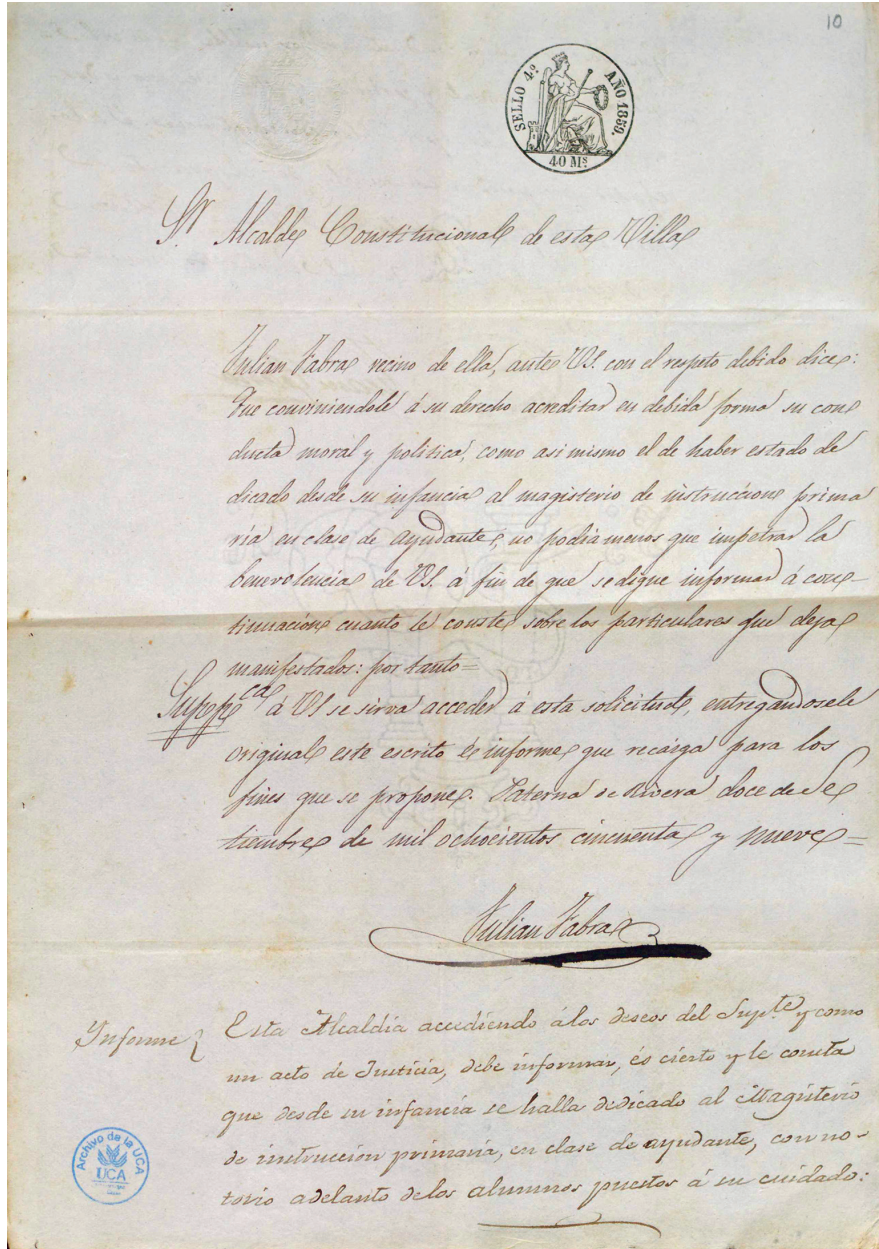 10
SELLO 4º AÑO 1859.
40 Mˢ
Sʳ Alcalde Constitucional de esta Villa
Julian Fabra vecino de ella, ante VS. con el respeto debido dice:
Que conviniendole á su derecho acreditar en debida forma su con
ducta moral y politica, como asi mismo el de haber estado de
dicado desde su infancia al magisterio de instruccion prima
ria en clase de ayudante, no podia menos que impetrar la
benevolencia de VS. á fin de que se digne informar á con-
tinuacion cuanto le conste sobre los particulares que deja
manifestados: por tanto=
Suppᶜᵃ á VS se sirva acceder á esta solicitud, entregandosele
original este escrito é informe que recaiga para los
fines que se propone. Paterna de Rivera doce de Se
tiembre de mil ochocientos cincuenta y nueve=
Julian Fabra
Informe } Esta Alcaldía accediendo á los deseos del Supᵗᵉ y como
un acto de Justicia, debe informar, és cierto y le consta
que desde su infancia se halla dedicado al Magisterio
de instruccion primaria, en clase de ayudante, con no-
torio adelanto de los alumnos puestos á su cuidado:
Archivo de la UCA
UCA